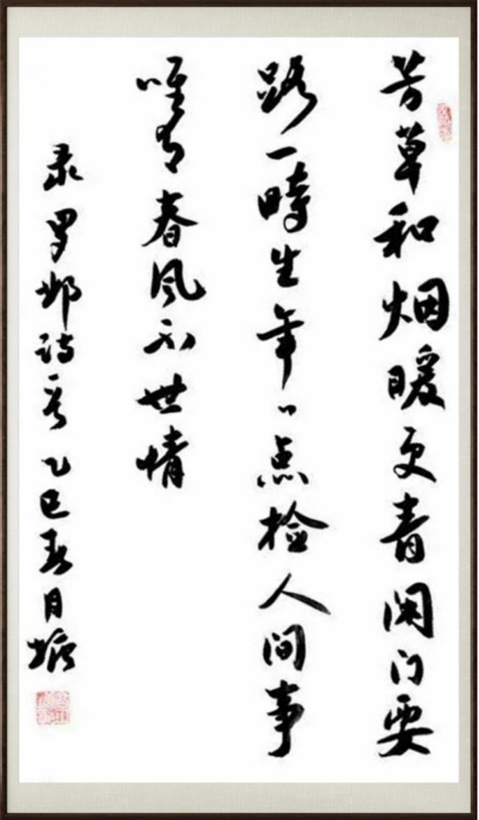 芳草和烟暖更青闲门要
路一時生年〻点检人间事
唯有春风不世情
录罗邺诗一首乙巳春月塘